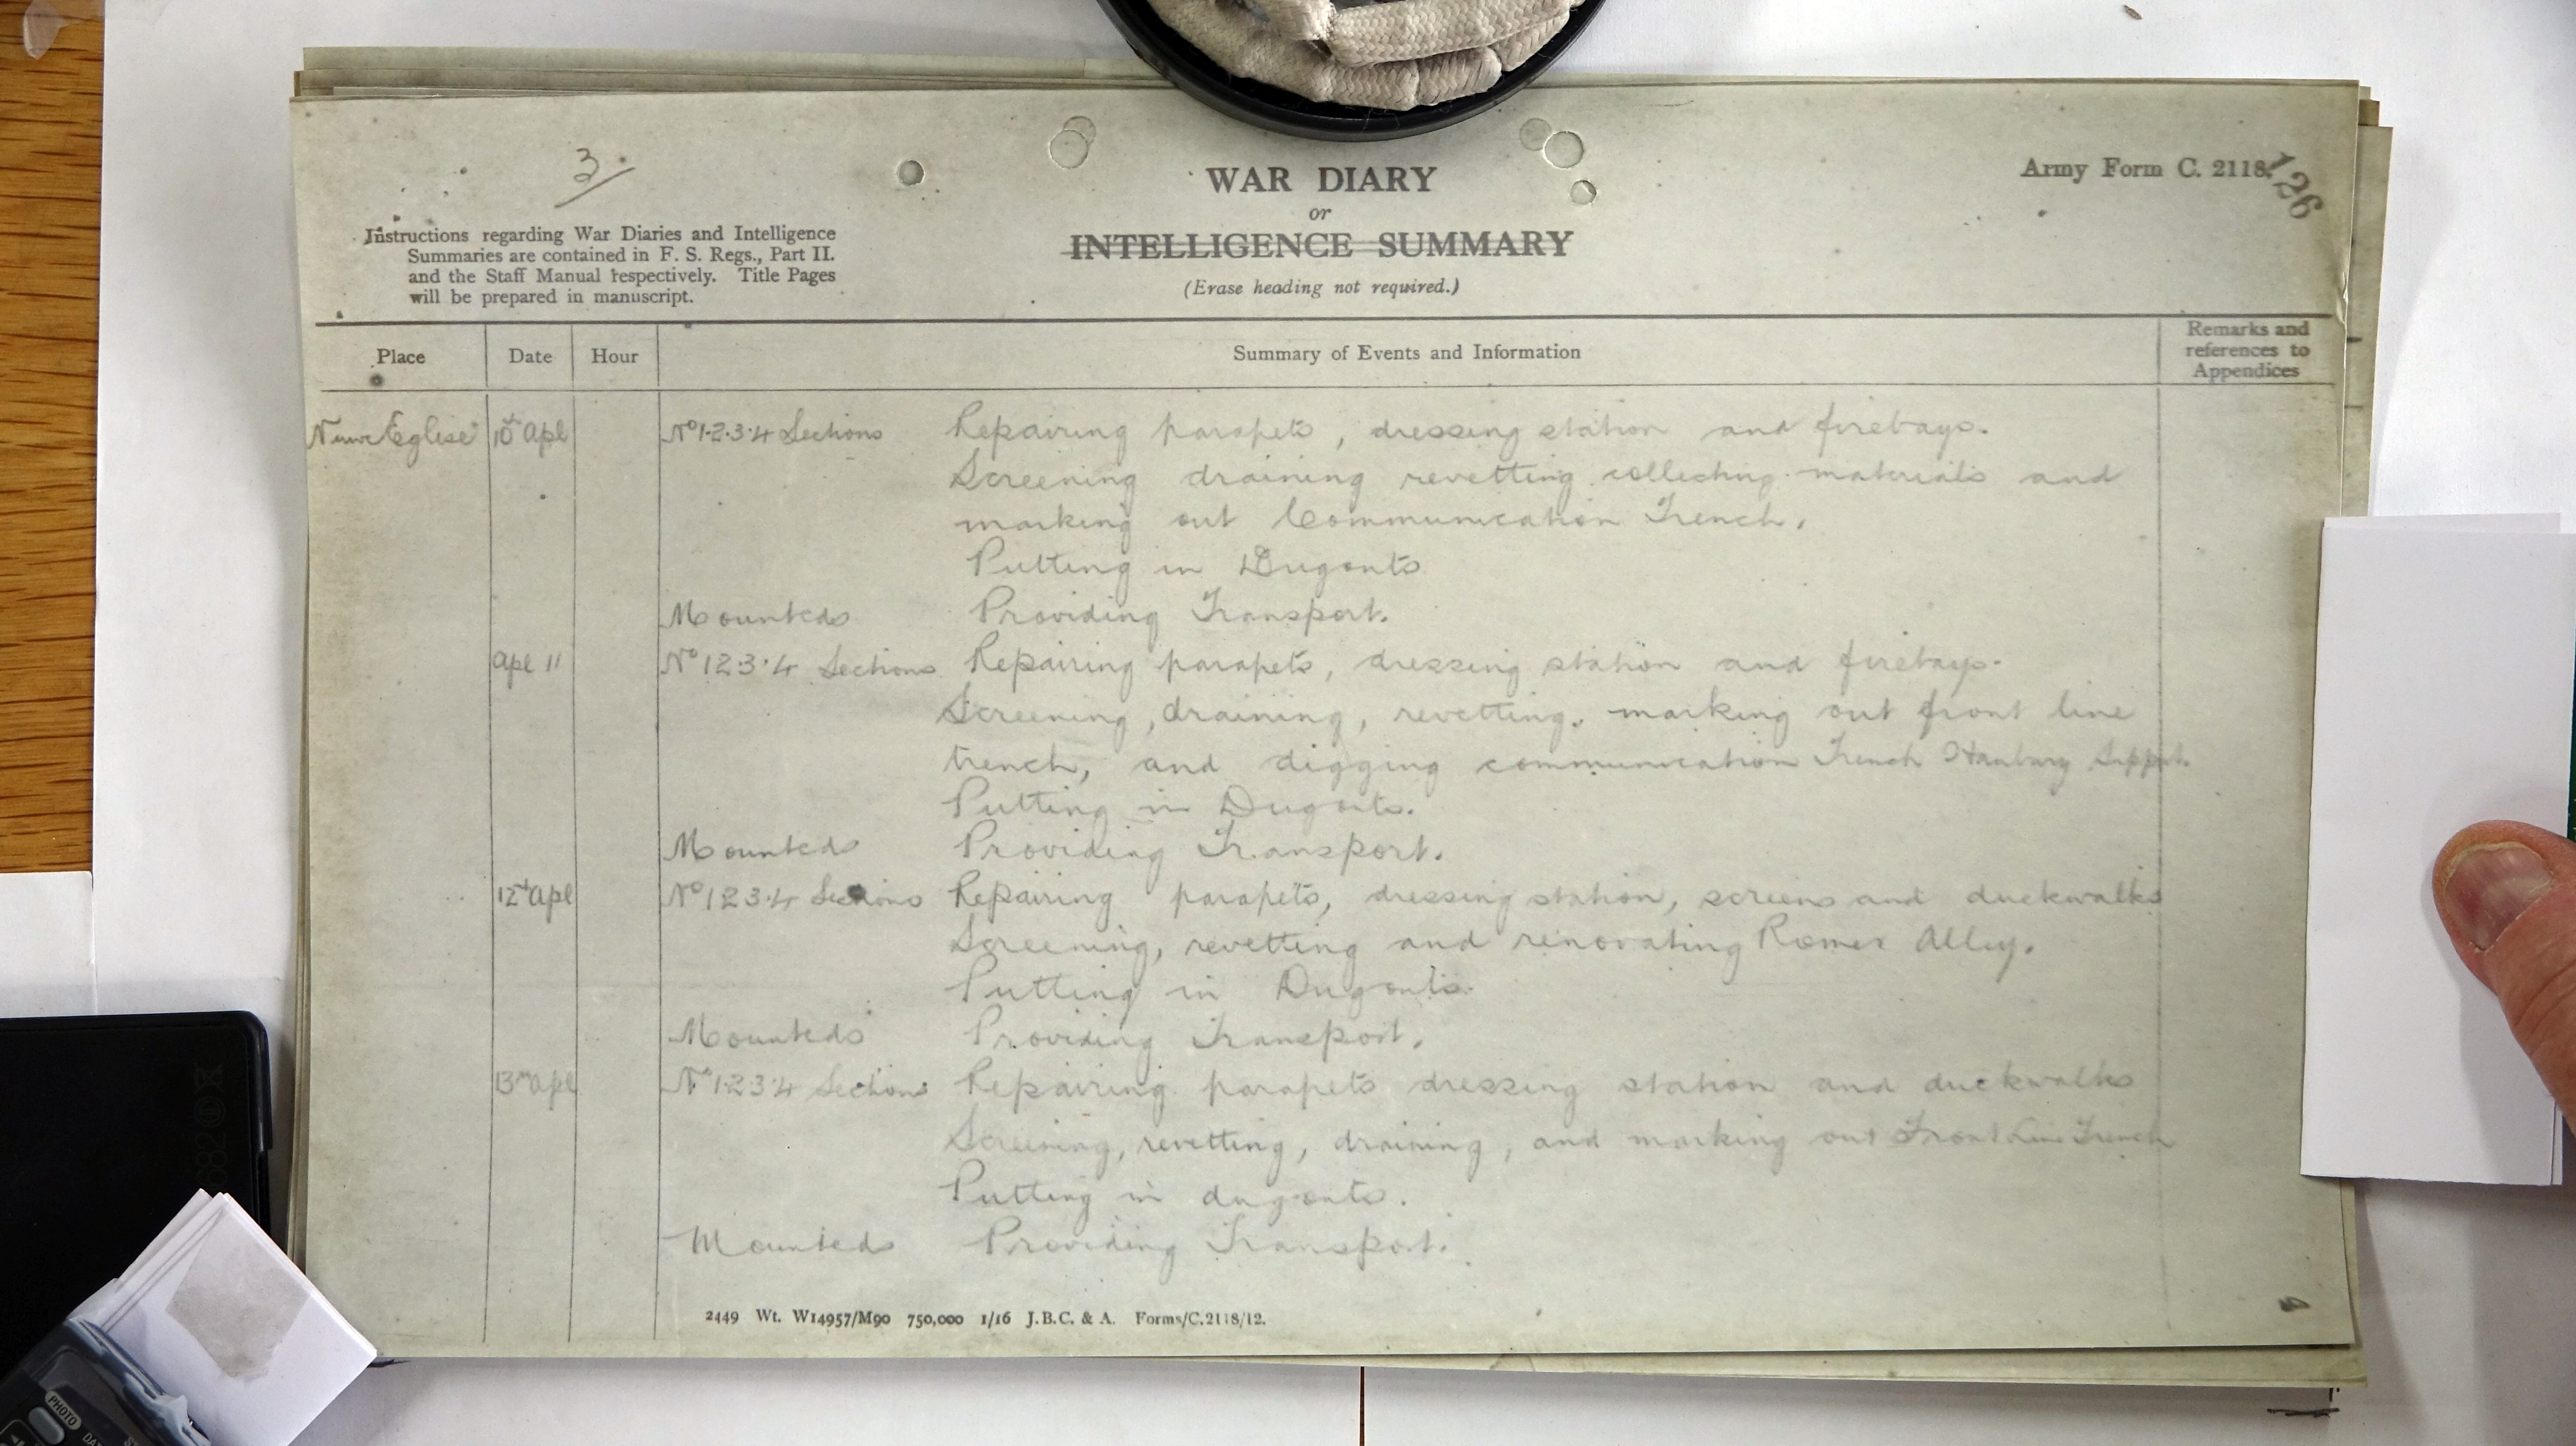 3.
WAR DIARY
or
INTELLIGENCE SUMMARY
(Erase heading not required.)
Army Form C. 2118.
126
Instructions regarding War Diaries and Intelligence
Summaries are contained in F. S. Regs., Part II.
and the Staff Manual respectively. Title Pages
will be prepared in manuscript.
Place Date Hour Summary of Events and Information Remarks and
references to
Appendices
Eglise 10th Apl No 1.2.3.4 Sections Repairing parapets, dressing station and firebays.
Screening draining revetting collecting materials and
marking out Communication Trench.
Putting in Dugouts
Mounteds Providing Transport.
Apl 11 No 1 2.3.4 Sections Repairing parapets, dressing station and firebays.
Screening, draining, revetting, marking out front line
trench, and digging communication Trench Hanbury Support.
Putting in Dugouts.
Mounteds Providing Transport.
12th Apl No 1 2 3.4 Sections Repairing parapets, dressing station, screens and duckwalks
Screening, revetting and renovating Romer Alley.
Putting in Dugouts.
Mounteds Providing Transport.
13th Apl No 1.2.3.4 Sections Repairing parapets dressing station and duckwalks
Screening, revetting, draining, and marking out Front Line Trench
Putting in dugouts.
Mounteds Providing Transport.
2449 Wt. W14957/M90 750,000 1/16 J.B.C. & A. Forms/C.2118/12.
4
PHOTO